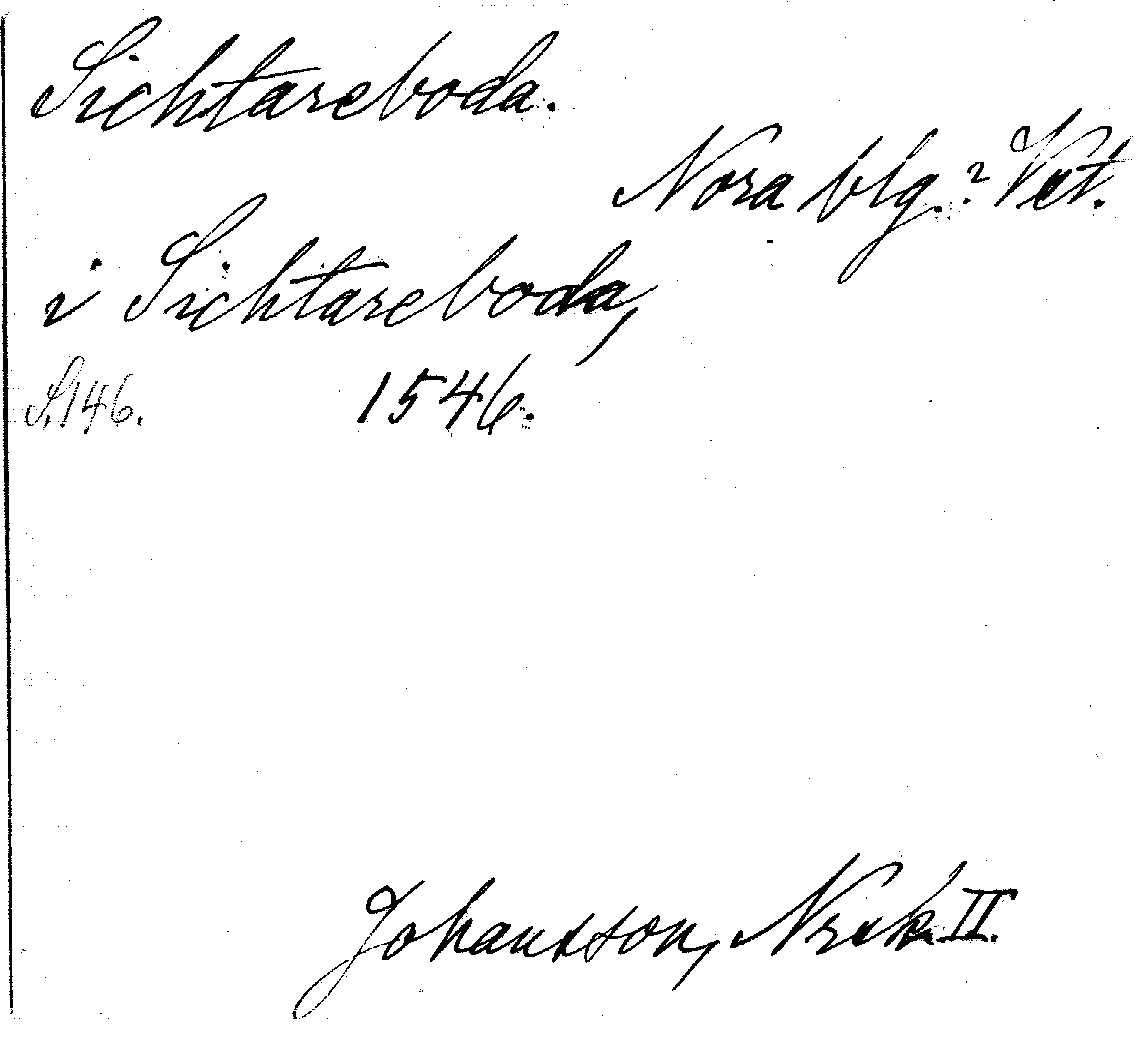 Sichtareboda.
Nora blg.? Vst.
i Sichtareboda,
S. 146. 1546.
Johansson, Nrik. II.